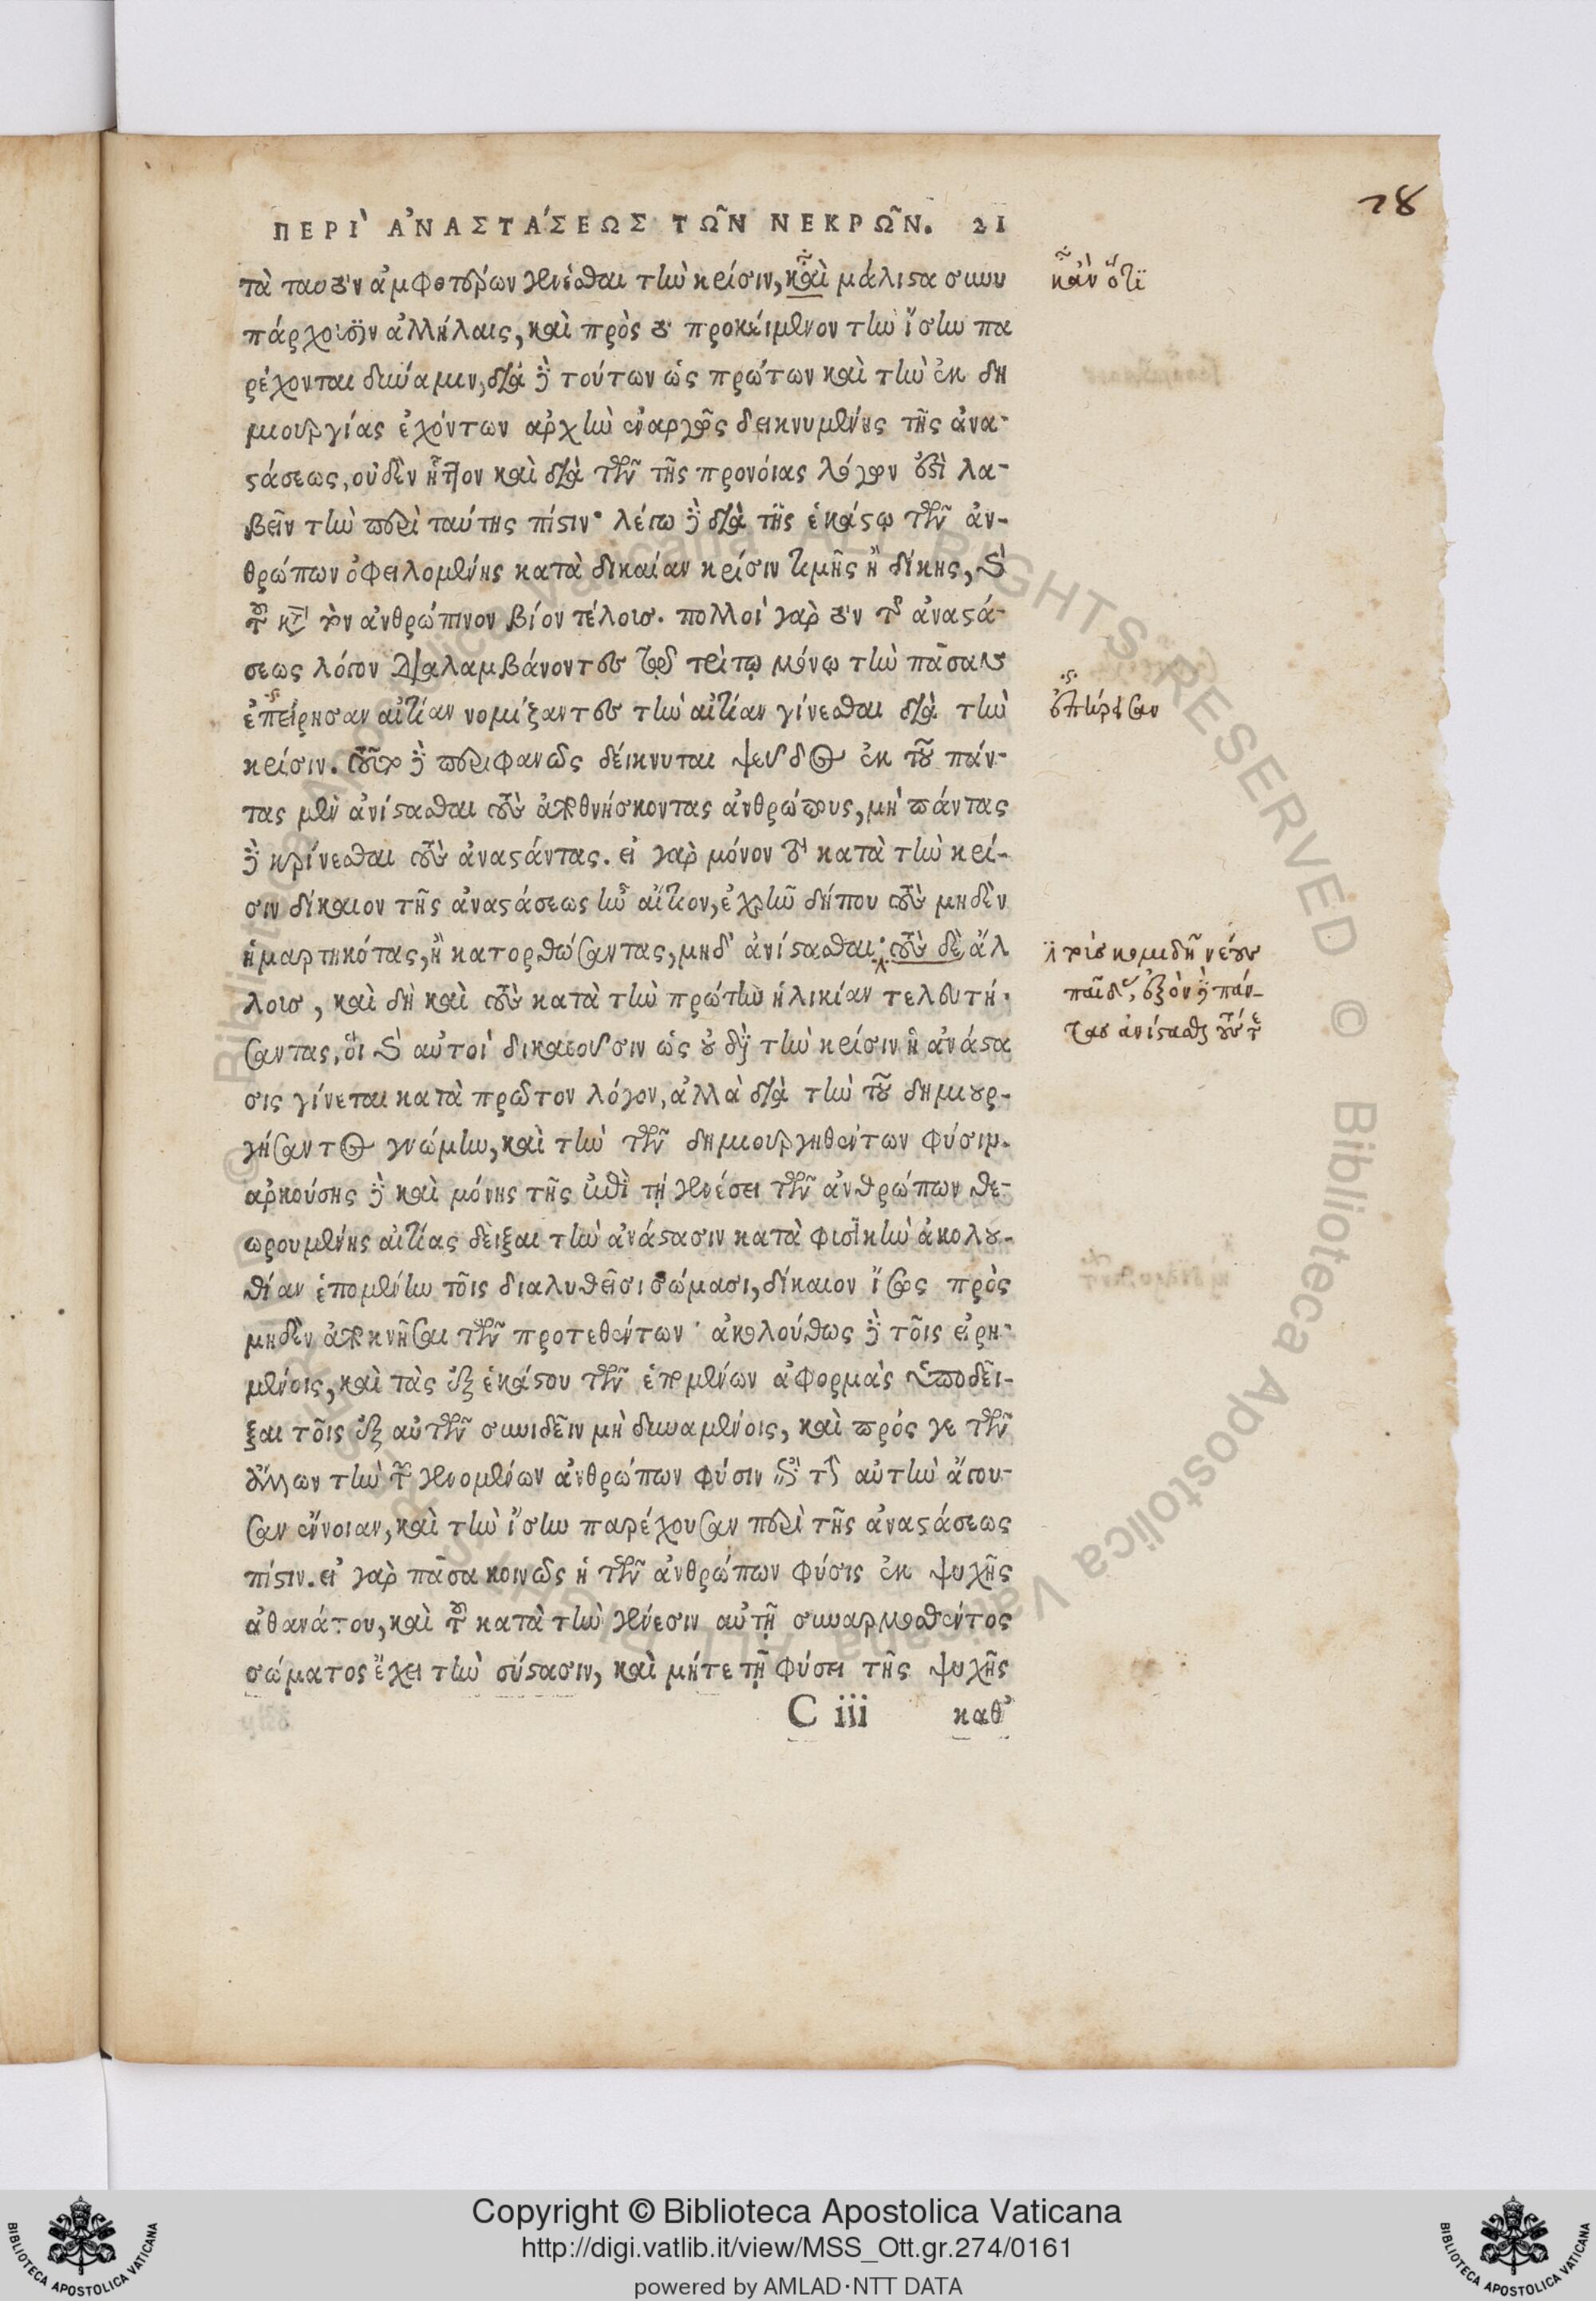 28
ΠΕΡΙ ἈΝΑΣΤΑΣΕΩΣ ΤΩ͂Ν ΝΕΚΡΩ͂Ν. 21
τὰ ταυ οὖν ἀμφοτέρων γενέσθαι τὴν κρίσιν, καὶ μάλιστα συνυ
κἂν ὅτι
πάρχουσιν ἀλλήλαις, καὶ πρὸς ὃ προκείμενον τὴν ἴσην πα
ρέχονται δύναμιν, διὰ δὲ τούτων ὡς πρώτων καὶ τὴν ἐκ δη
μιουργίας ἐχόντων ἀρχὴν ἐναργῶς δεικνυμένης τῆς ἀνα-
στάσεως, οὐδὲν ἧττον καὶ διὰ τῶν τῆς προνοίας λόγων ἐστὶ λα-
βεῖν τὴν περὶ ταύτης πίστιν· λέγω δὲ διὰ τῆς ἑκάστῳ τῶν ἀν-
θρώπων ὀφειλομένης κατὰ δικαίαν κρίσιν τιμῆς ἢ δίκης, καὶ
τοῦ κατὰ τὸν ἀνθρώπινον βίον τέλους. πολλοὶ γὰρ οὖν τὸν ἀναστά-
σεως λόγον διαλαμβάνοντες τῷ τρίτῳ μόνῳ τὴν πᾶσαν
ἐπείρησαν αἰτίαν νομίζαντες τὴν αἰτίαν γίνεσθαι διὰ τὴν
ἐπήρεισαν
κρίσιν. τοῦτο δὲ περιφανῶς δείκνυται ψεῦδος ἐκ τοῦ πάν-
τας μὲν ἀνίστασθαι τοὺς ἀποθνήσκοντας ἀνθρώπους, μὴ πάντας
δὲ κρίνεσθαι τοὺς ἀναστάντας. εἰ γὰρ μόνον τὸ κατὰ τὴν κρί-
σιν δίκαιον τῆς ἀναστάσεως ἦν αἴτιον, ἐχρῆν δήπου τοὺς μηδὲν
ἡμαρτηκότας, ἢ κατορθώσαντας, μηδ' ἀνίστασθαι· τοὺς δὲ ἄλ
τοὺς κομιδῆ νέους
παῖδας, ἐξ ὧν δὲ πάν-
τας ἀνίστασθαι τούς τε
λους, καὶ δὴ καὶ τοὺς κατὰ τὴν πρώτην ἡλικίαν τελευτή-
σαντας, οἳ καὶ αὐτοὶ δικαιοῦσιν ὡς οὐ διὰ τὴν κρίσιν ἡ ἀνάστα
σις γίνεται κατὰ πρῶτον λόγον, ἀλλὰ διὰ τὴν τοῦ δημιουρ-
γήσαντος γνώμην, καὶ τὴν τῶν δημιουργηθέντων φύσιν.
ἀρκούσης δὲ καὶ μόνης τῆς ἐπὶ τῇ γενέσει τῶν ἀνθρώπων θε-
ωρουμένης αἰτίας δεῖξαι τὴν ἀνάστασιν κατὰ φυσικὴν ἀκολου-
θίαν ἑπομένην τοῖς διαλυθεῖσι σώμασι, δίκαιον ἴσως πρὸς
μηδὲν ἀποκνῆσαι τῶν προτεθέντων· ἀκολούθως δὲ τοῖς εἰρη-
μένοις, καὶ τὰς ἐξ ἑκάστου τῶν ἑπομένων ἀφορμὰς ὑποδεῖ-
ξαι τοῖς ἐξ αὐτῶν συνιδεῖν μὴ δυναμένοις, καὶ πρός γε τῶν
ἄλλων τὴν τῶν γενομένων ἀνθρώπων φύσιν ἐπὶ τὴν αὐτὴν ἄγου-
σαν ἔννοιαν, καὶ τὴν ἴσην παρέχουσαν περὶ τῆς ἀναστάσεως
πίστιν. εἰ γὰρ πᾶσα κοινῶς ἡ τῶν ἀνθρώπων φύσις ἐκ ψυχῆς
ἀθανάτου, καὶ τοῦ κατὰ τὴν γένεσιν αὐτῇ συναρμοσθέντος
σώματος ἔχει τὴν σύστασιν, καὶ μήτε τῇ φύσει τῆς ψυχῆς
C iii καθ'
© Biblioteca Apostolica Vaticana ALL RIGHTS RESERVED
Copyright © Biblioteca Apostolica Vaticana
http://digi.vatlib.it/view/MSS_Ott.gr.274/0161
powered by AMLAD·NTT DATA
BIBLIOTECA APOSTOLICA VATICANA
BIBLIOTECA APOSTOLICA VATICANA